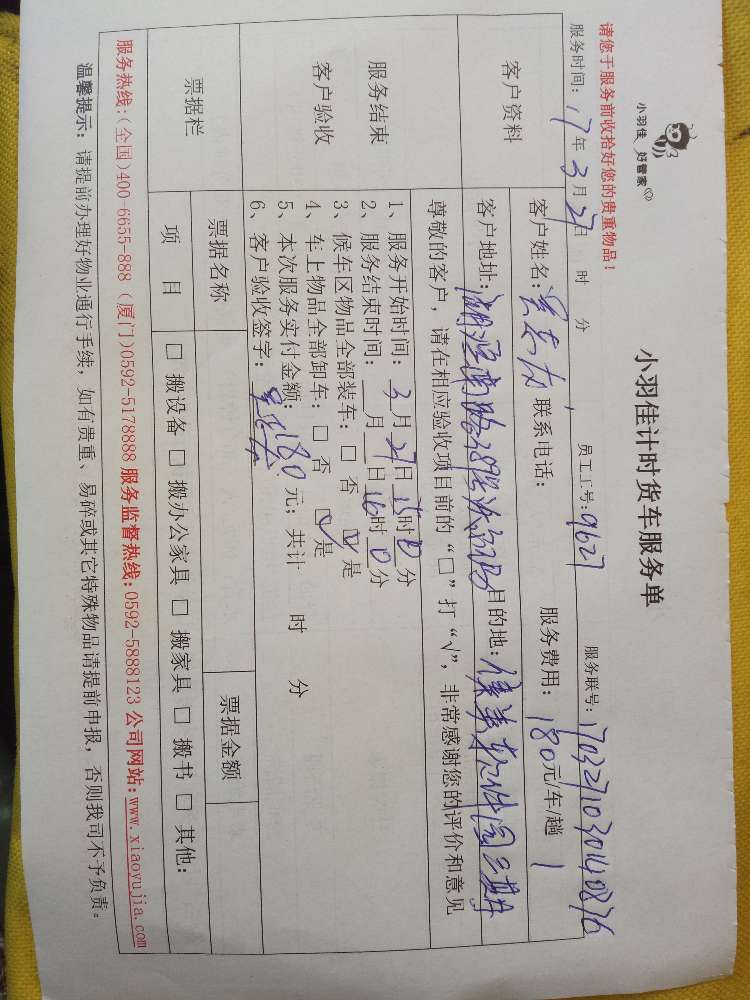 小羽佳 好管家
小羽佳计时货车服务单
请您于服务前收拾好您的贵重物品！
服务时间：17年3月27日 时 分 员工工号：9627 服务联号：170327103040876
客户资料
客户姓名： 联系电话： 服务费用：180元/车/趟 1
客户地址： 目的地： 软件园三期
尊敬的客户，请在相应验收项目前的“□”打“√”，非常感谢您的评价和意见
服务结束
客户验收
1、服务开始时间：3月27日15时0分
2、服务结束时间：月 日16时0分
3、候车区物品全部装车：□ 否 ☑ 是
4、车上物品全部卸车：□ 否 ☑ 是
5、本次服务实付金额：180元；共计 时 分
6、客户验收签字：
票据栏
票据名称 票据金额
项 目 □ 搬设备 □ 搬办公家具 □ 搬家具 □ 搬书 □ 其他：
服务热线：(全国)400-6655-888 (厦门)0592-5178888 服务监督热线：0592-5888123 公司网站：www.xiaoyujia.com
温馨提示：请提前办理好物业通行手续，如有贵重、易碎或其它特殊物品请提前申报，否则我司不予负责。